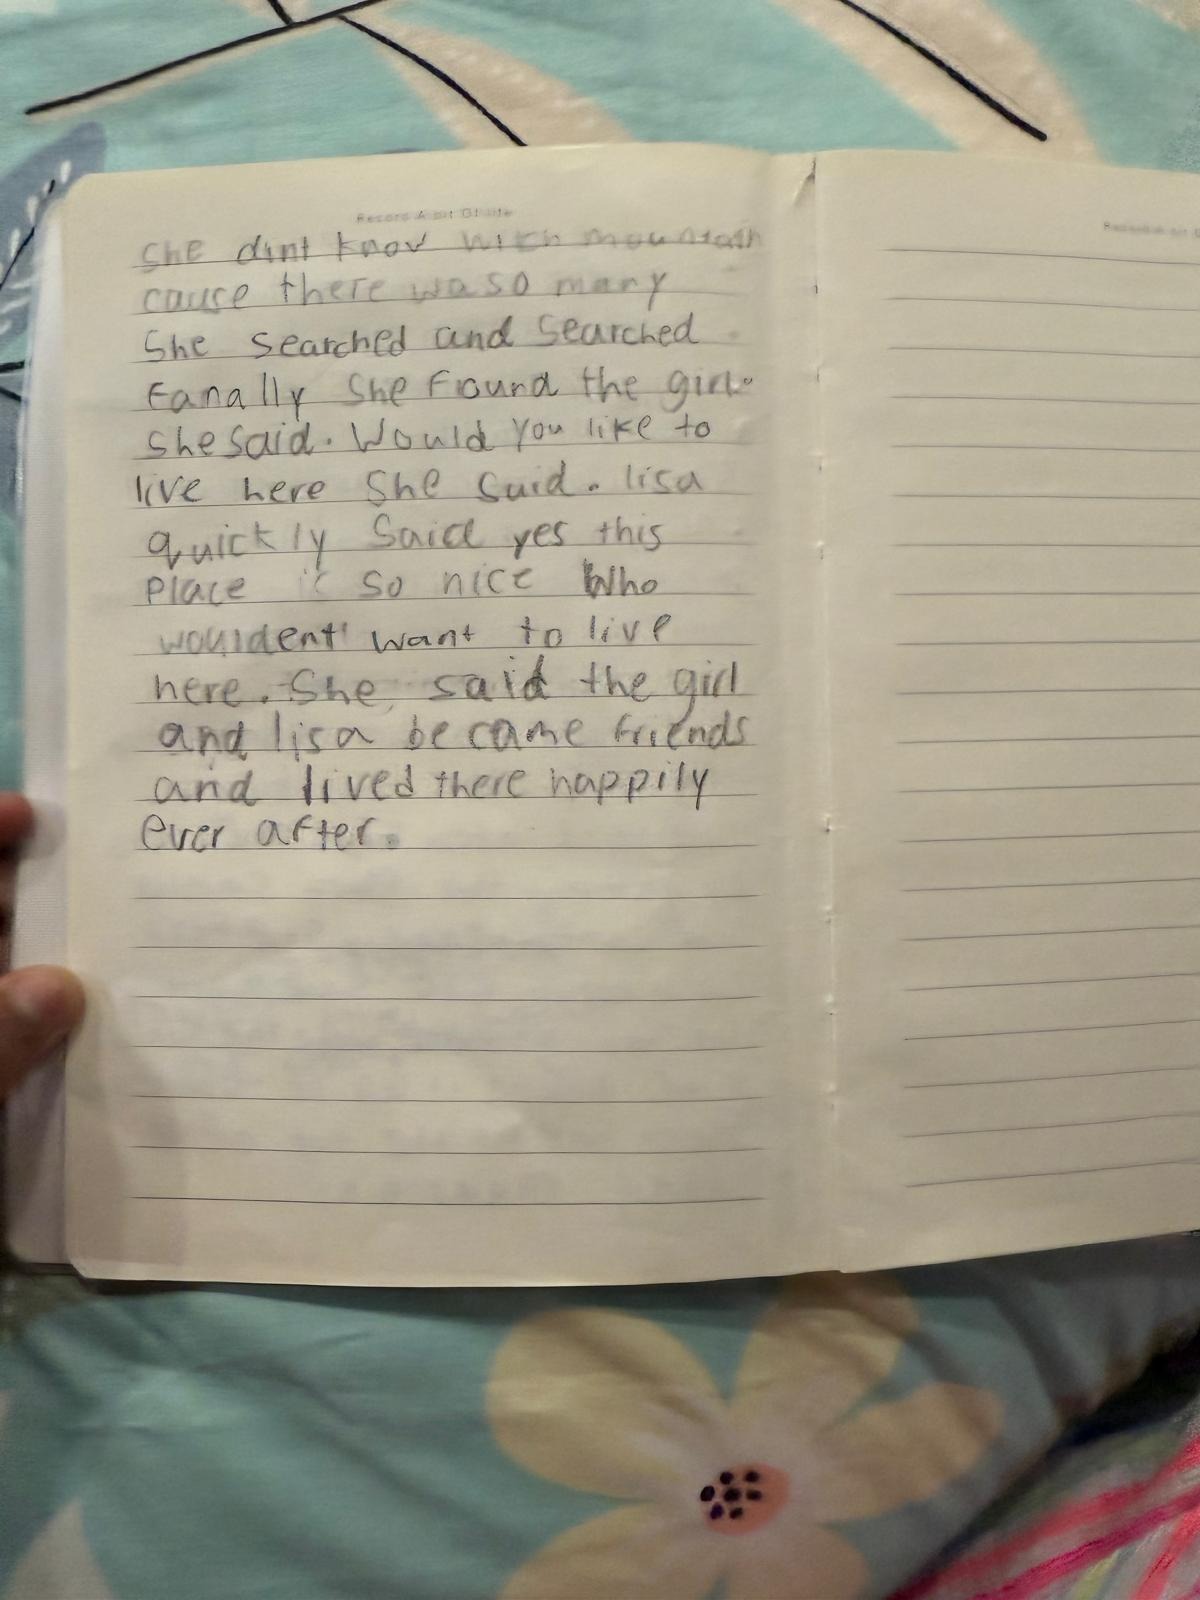 Record A bit Of life
She dint know witch mountain
cause there was so many
She searched and searched
Fanally She Found the girl.
she said. Would you like to
live here She Said. lisa
quickly Said yes this
Place is so nice Who
wouldent want to live
here. She said the girl
and lisa became friends
and lived there happily
ever after.